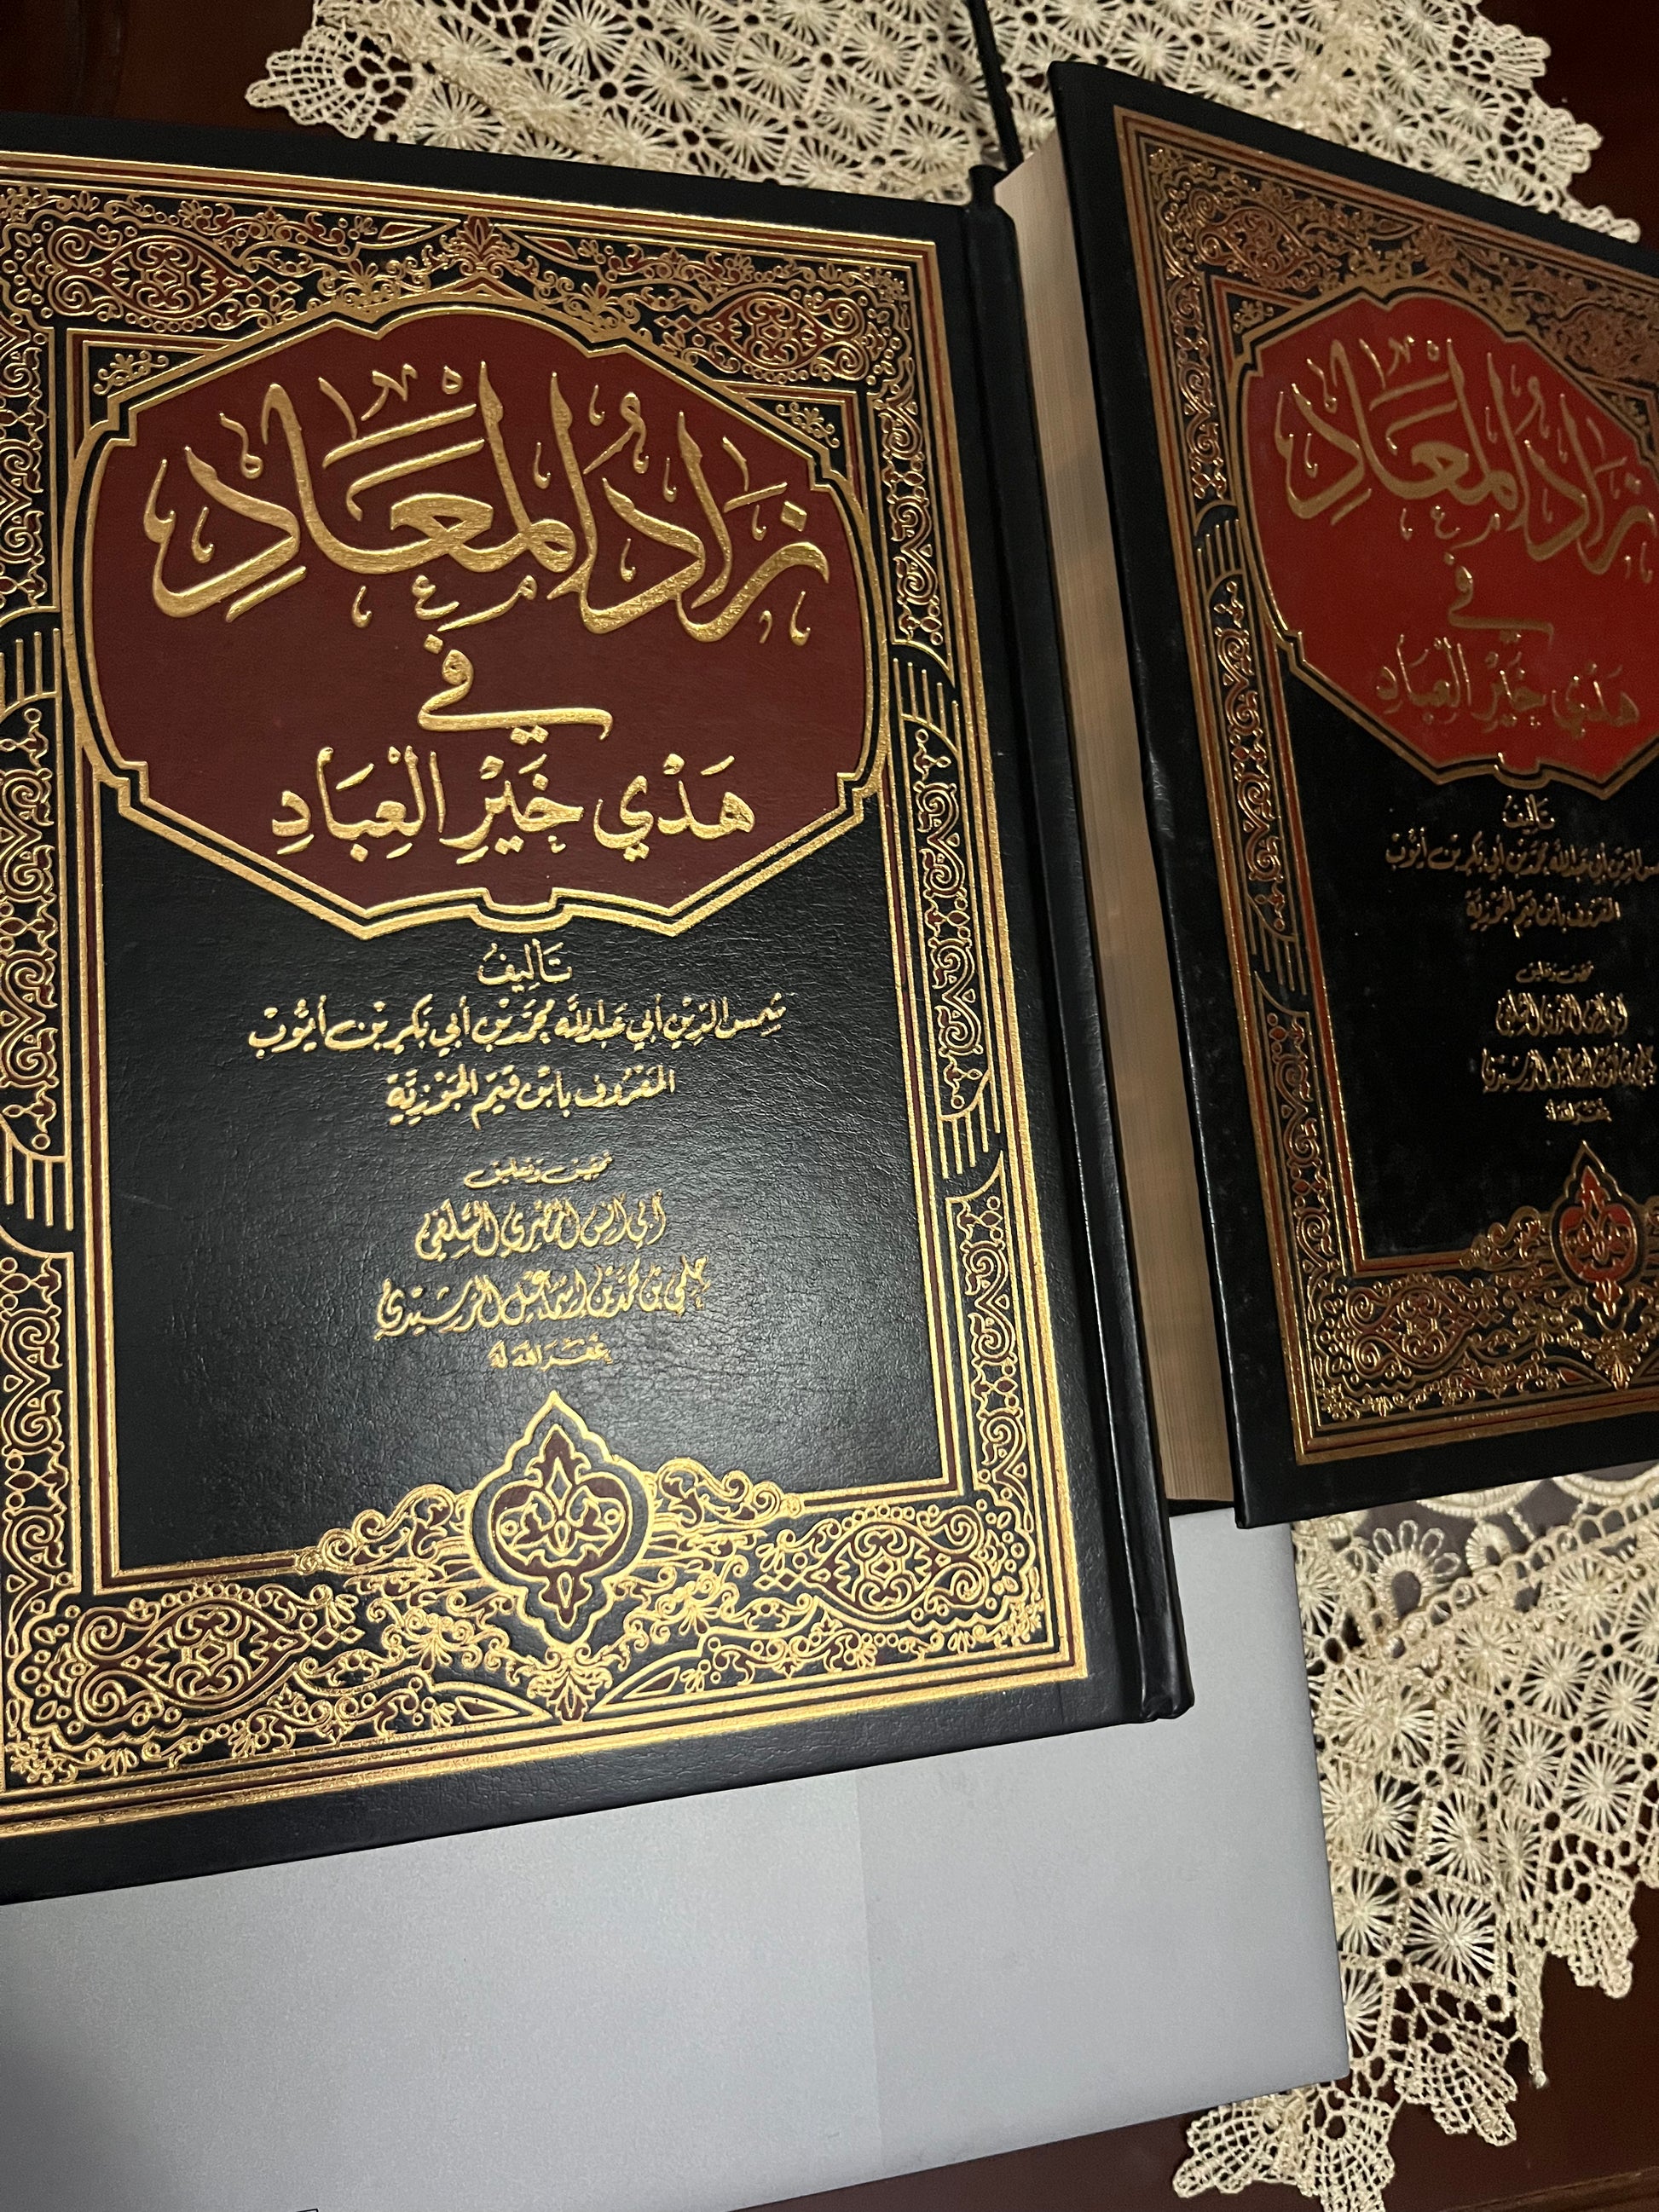 زَادُ الْمَعَادِ
في
هَدْيِ خَيْرِ الْعِبَادِ
تَأليفُ
شمس الدّين أبي عبد اللَّه محمّد بْن أبي بَكر بْن أيّوبْ
المَعْرُوف بابْن قيِّم الجَوْزِيَّة
تحقيق وتعليق
أبي أنس المصري السَّلفي
حلمي بن محمد بن إسماعيل الرشيدي
غَفَرَ الله لهُ
زَادُ الْمَعَادِ
في
هَدْيِ خَيْرِ الْعِبَادِ
تَأليفُ
الدّين أبي عبد اللَّه محمّد بْن أبي بَكر بْن أيّوبْ
المَعْرُوف بابْن قيِّم الجَوْزِيَّة
تحقيق وتعليق
أبي أنس المصري السَّلفي
حلمي بن محمد بن إسماعيل الرشيدي
غَفَرَ الله لهُ